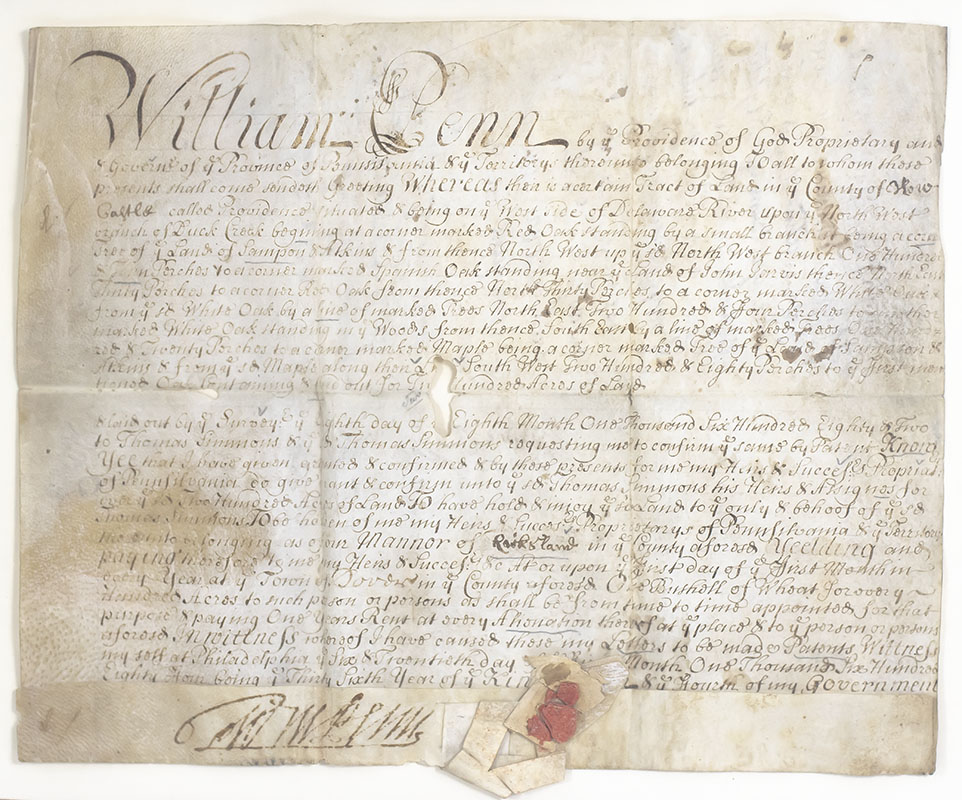 William Penn by yͤ Providence of God Proprietary and
& Govern.ʳ of yͤ Province of Pennsilvania & yͤ Territorys thereunto belonging To all to whom these
presents shall come sendeth Greeting Whereas there is a certain Tract of Land in yͤ County of New
Castle called Providence situated & being on yͤ West side of Delaware River upon yͤ North West
branch of Duck Creek begining at a corner marked Red Oak standing by a small branch being a corner
Tree of yͤ Land of Sampson & Atkins & from thence North West up yͤ sd North West branch One Hundred
& Perches to a corner marked Spanish Oak standing near yͤ Land of John Jarvis thence North East
thirty Perches to a corner Red Oak from thence North thirty Perches to a corner marked White Oak
from yͤ sd White Oak by a line of marked Trees North East Two Hundred & Four Perches to another
marked White Oak standing in yͤ Woods from thence South East by a line of marked Trees Two Hund
red & Twenty Perches to a corner marked Maple being a corner marked Tree of yͤ Land of Sampson &
Atkins & from yͤ sd Maple along their South West Two Hundred & Eighty Perches to yͤ first men
tioned Oak containing & laid out for Two Hundred Acres of Land
& laid out by yͤ Survey yͤ Eighth day of yͤ Eighth Month One Thousand Six Hundred Eighty & Two
to Thomas Simmons & yͤ sd Thomas Simmons requesting me to confirm yͤ same by Patent Know
Yee that I have given granted & confirmed & by these presents for me my Heirs & Success.ʳˢ Proprietarys
of Pensilvania do give grant & confirm unto yͤ sd Thomas Simmons his Heirs & Assignes for
ever yͤ sd Two Hundred Acres of Land To have hold & injoy yͤ sd Land to yͤ only & behoof of yͤ sd
Thomas Simmons To be holden of me my Heirs & Success.ʳˢ Proprietarys of Pennsilvania & yͤ Territorys
thereunto belonging as of our Mannor of Rocks land in yͤ County aforesd Yeelding and
paying therefore to me my Heirs & Success.ʳˢ At or upon yͤ first day of yͤ First Month in
every Year at yͤ Town of Dover in yͤ County aforesd One Bushell of Wheat for every
Hundred Acres to such person or persons as shall be from time to time appointed for that
purpose & paying One Years Rent at every Alienation thereof at yͤ place & to yͤ person or persons
aforesd In wittness whereof I have caused these my Letters to be made Patents Witness
my self at Philadelphia yͤ Six & Twentieth day Month One Thousand Six Hundred
Eighty Four being yͤ Thirty Sixth Year of yͤ & yͤ Fourth of my Government
Wm Penn